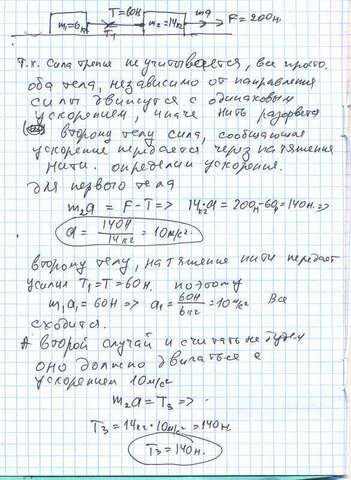 T=60Н ma
m₁=6кг m₂=14кг F=200н
T₁
Т.к. Сила трения не учитывается, все просто.
оба тела, независимо от направления
силы движутся с одинаковым
ускорением, иначе нить разорвется
второму телу сила, сообщающая
ускорение передается через натяжения
нити. определим ускорения.
для первого тела
m₂a = F-T => 14кг·a = 200н-60н=140н. =>
a = 140Н/14кг = 10м/с²
второму телу, натяжение нити передает
усилия T₁=T=60н. поэтому
m₁a₁ = 60Н => a₁ = 60Н/6кг = 10м/с² Все
сходится.
А второй случай и считать не будем
оно должно двигаться с
ускорением 10м/с²
m₂a = T₃ =>
T₃ = 14кг·10м/с² = 140н.
T₃ = 140н.